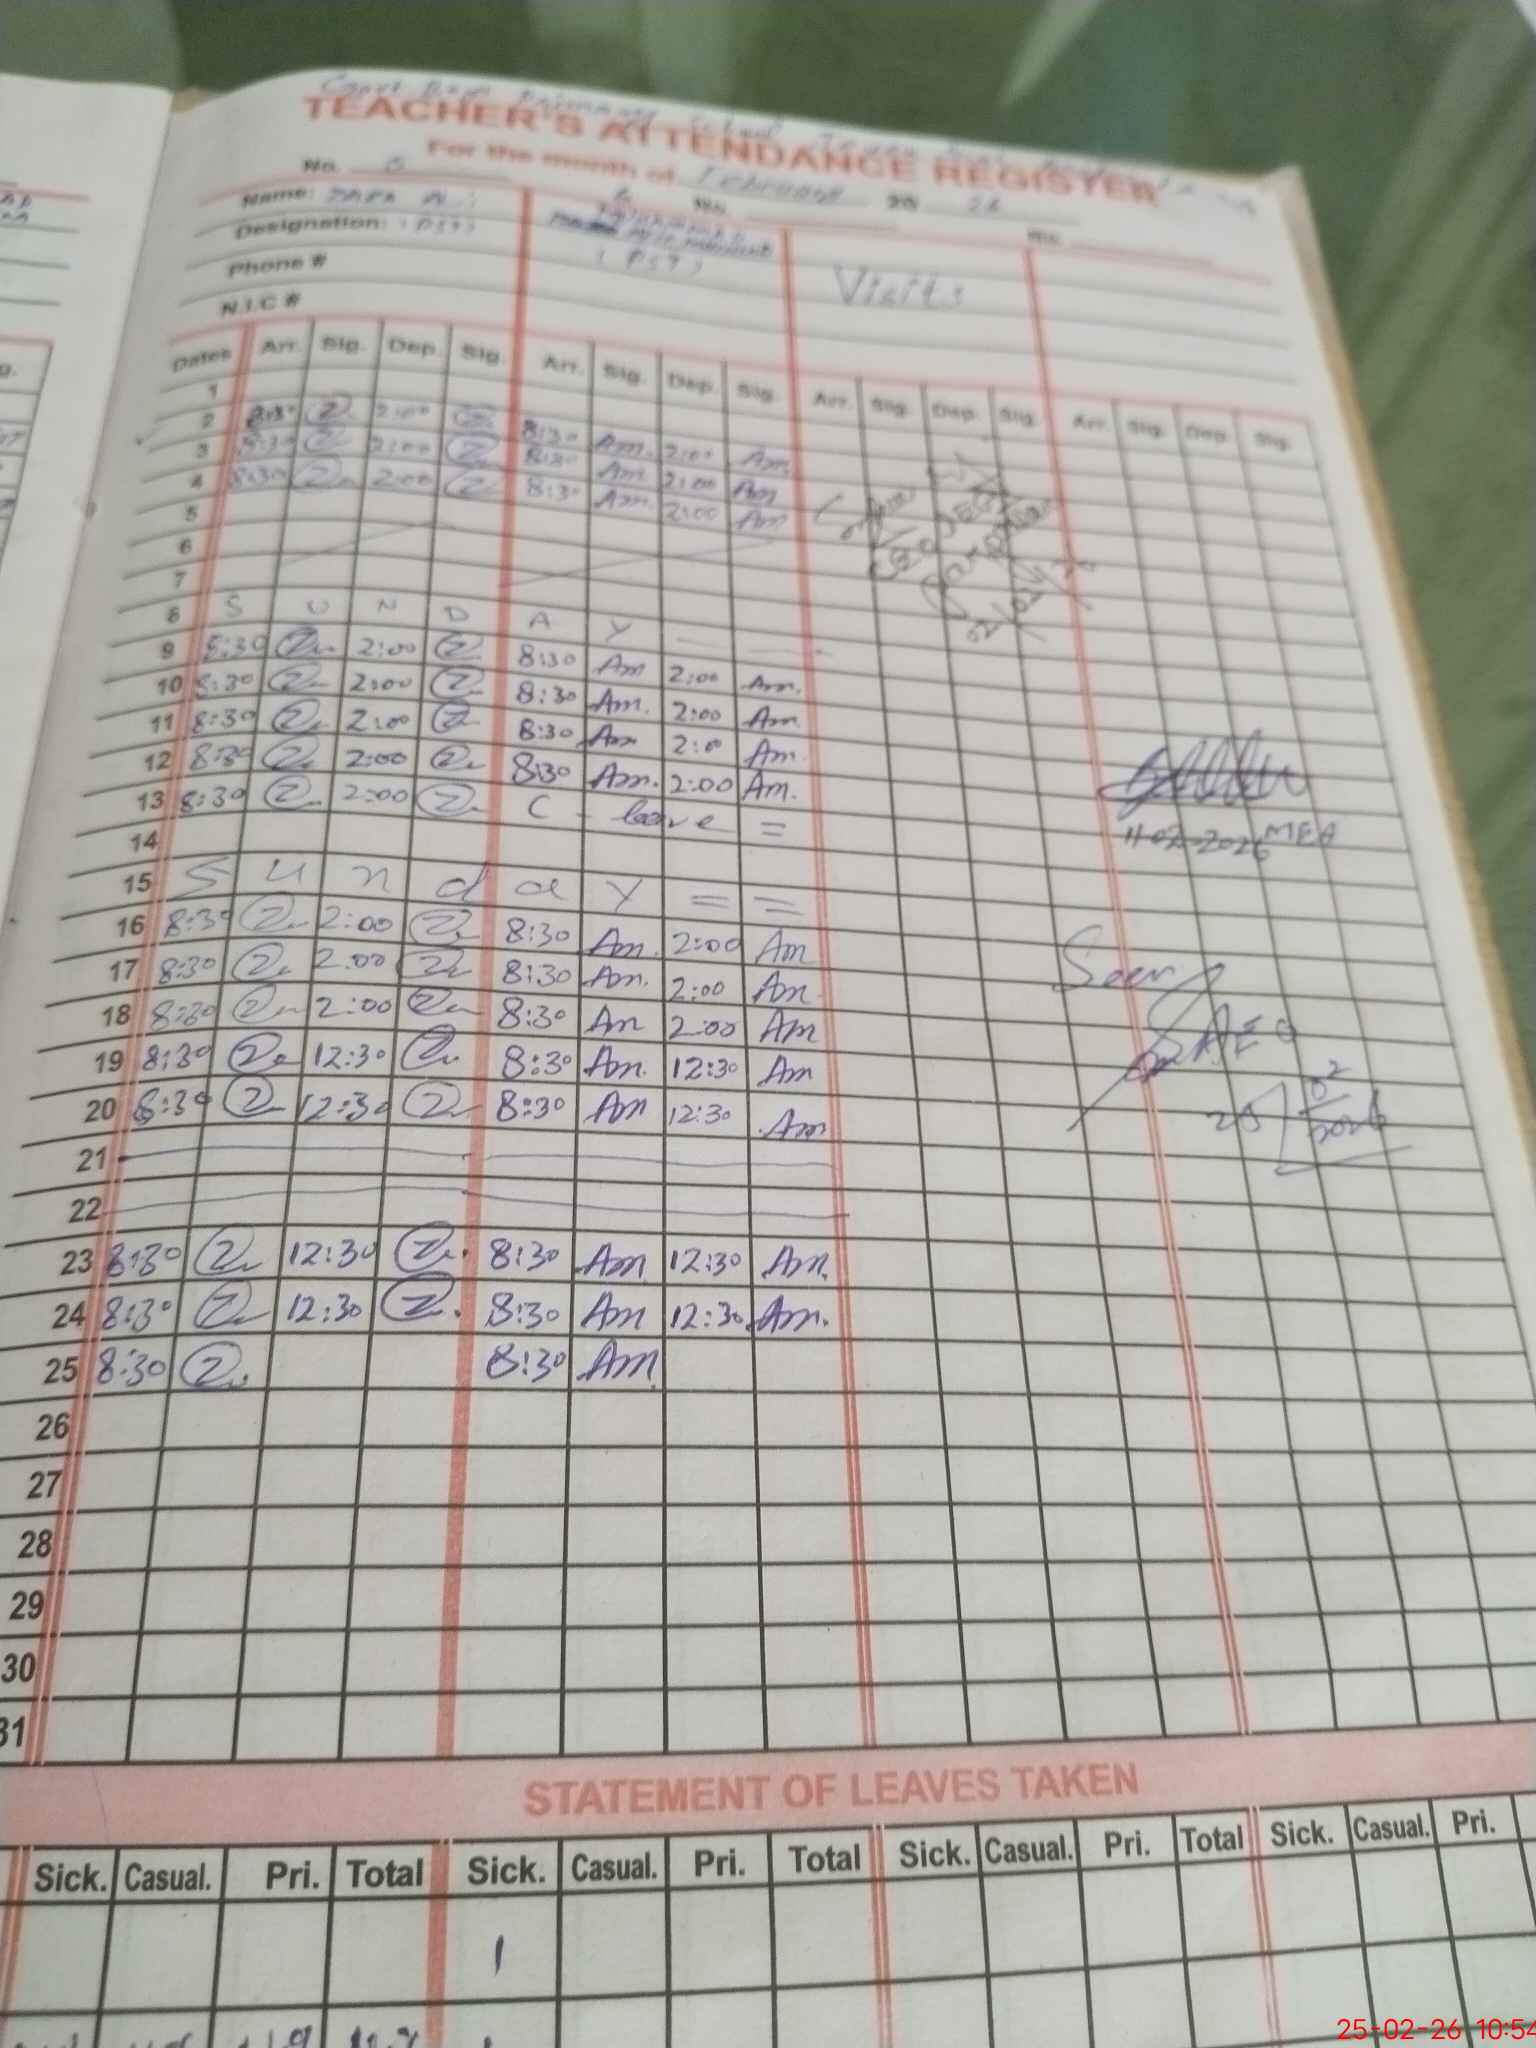 TEACHER'S ATTENDANCE REGISTER
For the month of February 20 26
No. No. No.
Name:
Designation: (PST)
(PST)
Visits
Phone #
N.I.C #
Dates Arr. Sig. Dep. Sig. Arr. Sig. Dep. Sig. Arr. Sig. Dep. Sig. Arr. Sig. Dep. Sig.
1
2 8:30 2:00 8:30 Am. 2:00 Am
3 8:30 2:00 8:30 Am 2:00 Am
4 8:30 2:00 8:30 Am. 2:00 Am
5
6
7
8 S U N D A Y
9 8:30 2:00 8:30 Am 2:00 Am.
10 8:30 2:00 8:30 Am. 2:00 Am
11 8:30 2:00 8:30 Am 2:0 Am
12 8:30 2:00 8:30 Am. 2:00 Am.
13 8:30 2:00 C - leave =
11-02-2026 MEA
14
15 S u n d a y = =
16 8:30 2:00 8:30 Am. 2:00 Am
17 8:30 2:00 8:30 Am. 2:00 Am
Seen
18 8:30 2:00 8:30 Am 2:00 Am
19 8:30 12:30 8:30 Am. 12:30 Am
AEO
20 8:30 12:30 8:30 Am 12:30 Am
25/02/2026
21
22
23 8:30 12:30 8:30 Am 12:30 Am.
24 8:30 12:30 8:30 Am 12:30 Am.
25 8:30 8:30 Am
26
27
28
29
30
31
STATEMENT OF LEAVES TAKEN
Sick. Casual. Pri. Total Sick. Casual. Pri. Total Sick. Casual. Pri. Total Sick. Casual. Pri.
1
25-02-26 10:54